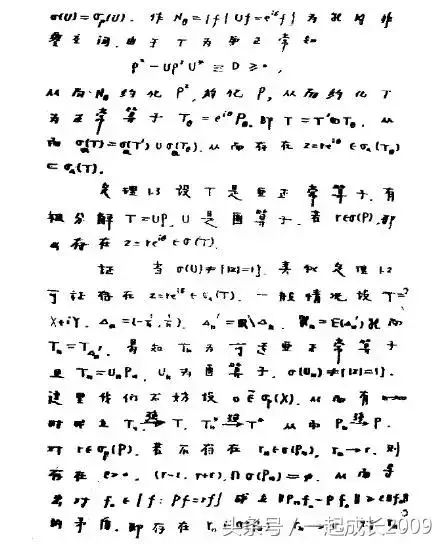 σ(U)=σp(U). 作 Nθ={f | Uf=e^{iθ}f} 为
空间,由于 T 为亚正常知
P²−UP²U* = D ≥ 0,
从而 Nθ 约化 P²,故化 P,从而约化 T
为正常算子 Tθ=e^{iθ}Pθ. 即 T=T'⊕Tθ. 从
而 σa(T)=σa(T')∪σa(Tθ). 从而存在 z=re^{iθ}∈σa(Tθ)
⊂σa(T).
定理1.3 设 T 是亚正常算子,有
极分解 T=UP, U 是酉算子,若 r∈σ(P),那
存在 z=re^{iθ}∈σ(T).
证 当 σ(U)≠{|z|=1},定理1.2
可证存在 z=re^{iθ}∈σa(T). 一般情况设 T=
X+iY, Δn=(−1/n, 1/n), Δn'=R\Δn, =E(Δn')H 而
Tn=TΔn'. 易知 Tn 为可逆亚正常算子
且 Tn=UnPn, Un 为酉算子, σ(Un)≠{|z|=1}.
这里我们不妨设 0∉σp(X). 从而有 n→∞
时 Tn 强→ T, Tn* 强→ T* 从而 Pn 强→ P.
对 r∈σp(P). 若不存在 rn∈σ(Pn), rn→r. 则
存在 ε>0, (r−ε, r+ε)∩σ(Pn)=φ. 从而
若对 f0∈{f: Pf=rf} 成立 ‖Pnf0−Pf0‖≥ε‖f0‖
的矛盾. 即存在 rn
头条@一起成长2009